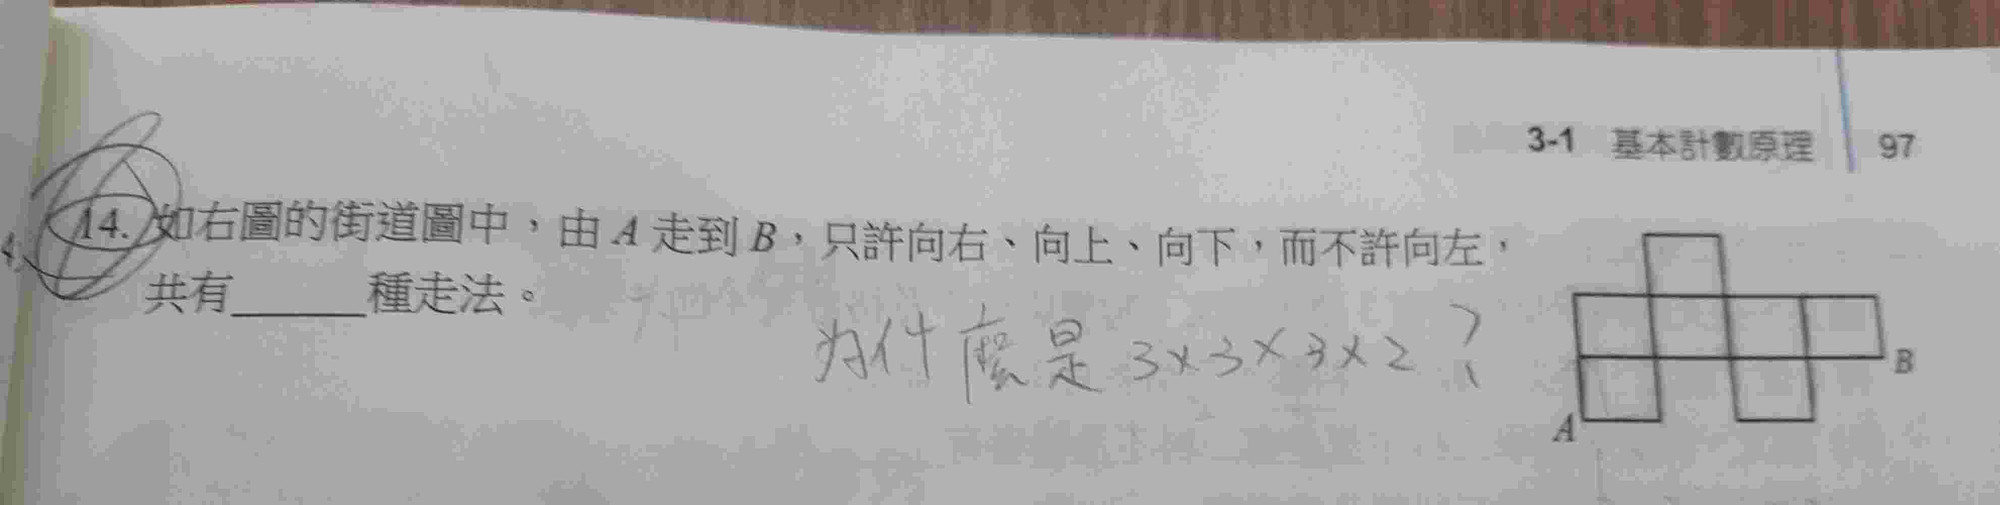 3-1 基本計數原理 97
14. 如右圖的街道圖中，由 A 走到 B，只許向右、向上、向下，而不許向左，
共有______種走法。
为什麼是 3×3×3×2？
B
A